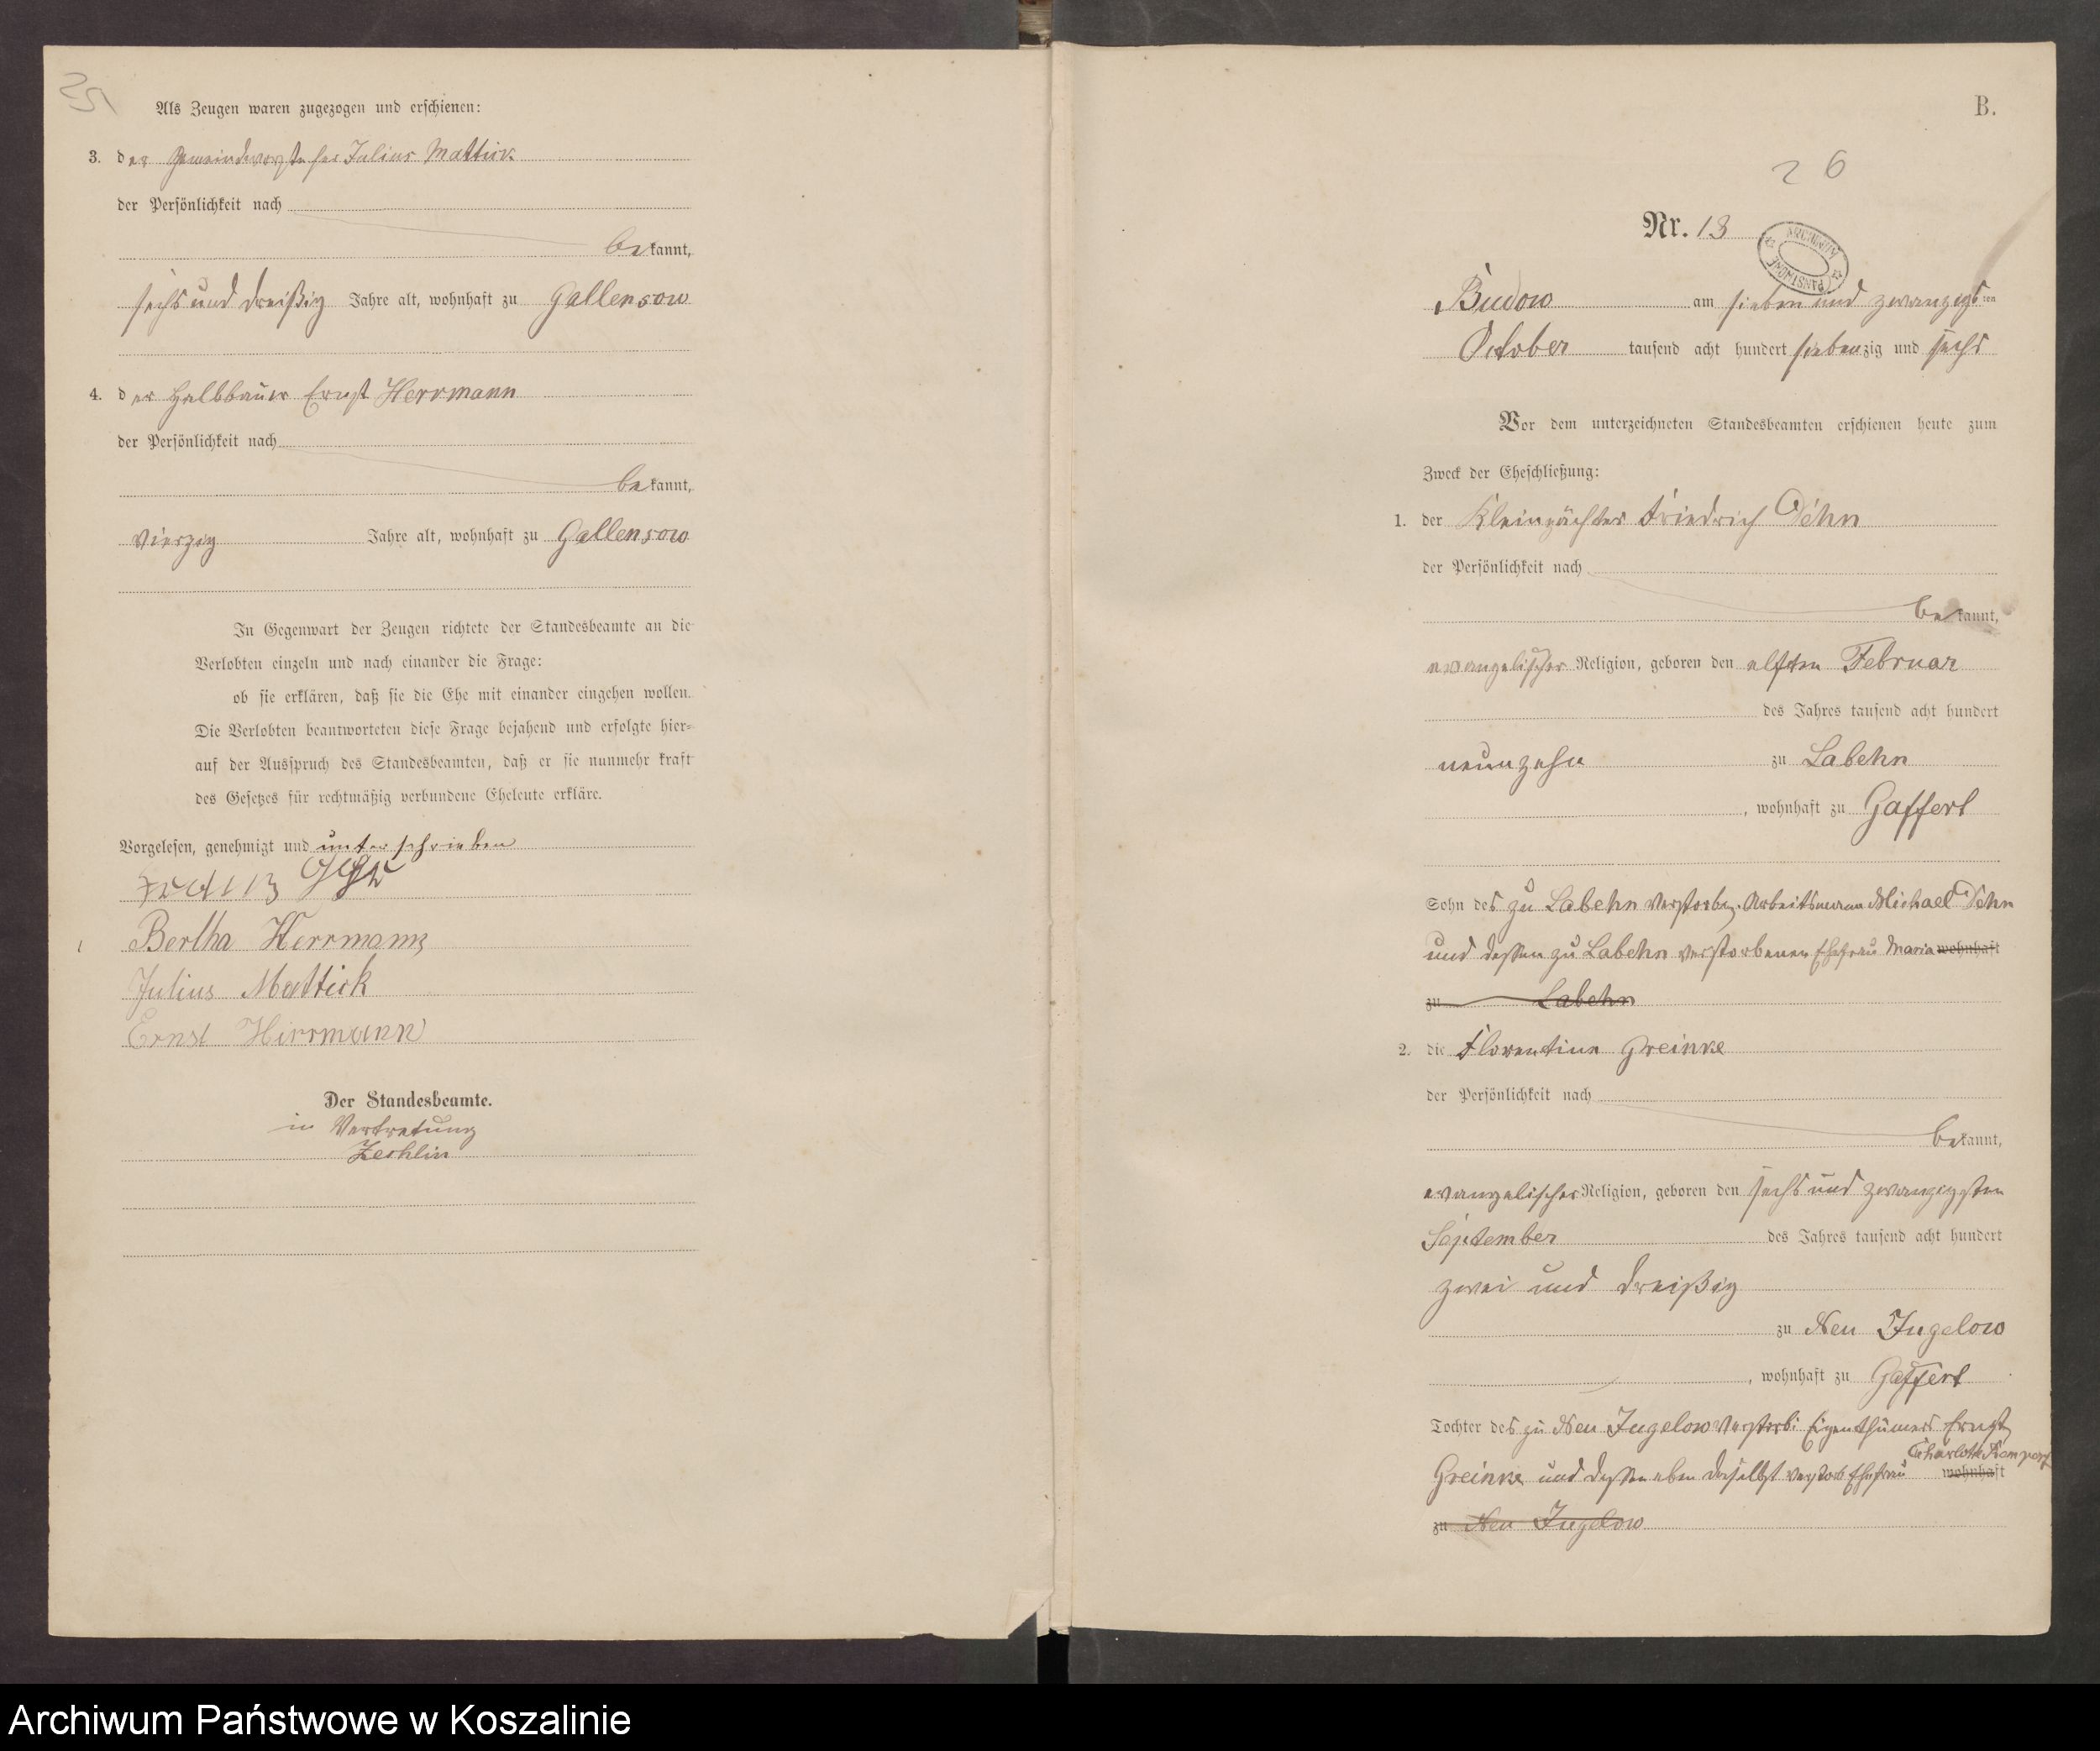 25
Als Zeugen waren zugezogen und erschienen:
3. der Gemeindevorsteher Julius Mattick
der Persönlichkeit nach
bekannt,
sechs und dreißig Jahre alt, wohnhaft zu Gallensow
4. der Halbbauer Ernst Herrmann
der Persönlichkeit nach
bekannt,
vierzig Jahre alt, wohnhaft zu Gallensow
In Gegenwart der Zeugen richtete der Standesbeamte an die
Verlobten einzeln und nach einander die Frage:
ob sie erklären, daß sie die Ehe mit einander eingehen wollen.
Die Verlobten beantworteten diese Frage bejahend und erfolgte hier-
auf der Ausspruch des Standesbeamten, daß er sie nunmehr kraft
des Gesetzes für rechtmäßig verbundene Eheleute erkläre.
Vorgelesen, genehmigt und unterschrieben
Bertha Herrmann
Julius Mattick
Ernst Herrmann
Der Standesbeamte.
in Vertretung
Zechlin
B.
26
Nr. 13
ARCHIWUM PAŃSTWOWE
Budow am sieben und zwanzigsten
October tausend acht hundert siebenzig und sechs
Vor dem unterzeichneten Standesbeamten erschienen heute zum
Zweck der Eheschließung:
1. der Kleinpächter Friedrich Dehn
der Persönlichkeit nach
bekannt,
evangelischer Religion, geboren den elften Februar
des Jahres tausend acht hundert
neunzehn zu Labehn
, wohnhaft zu Gaffert
Sohn des zu Labehn verstorb. Arbeitsmann Michael Dehn
und dessen zu Labehn verstorbenen Ehefrau Maria wohnhaft
zu Labehn
2. die Florentine Greinke
der Persönlichkeit nach
bekannt,
evangelischer Religion, geboren den sechs und zwanzigsten
September des Jahres tausend acht hundert
zwei und dreißig
zu Neu Jugelow
, wohnhaft zu Gaffert
Tochter des zu Neu Jugelow verstorb. Eigenthümers Ernst
Charlotte
Greinke und dessen eben daselbst verstorb Ehefrau wohnhaft
zu Neu Jugelow
Archiwum Państwowe w Koszalinie